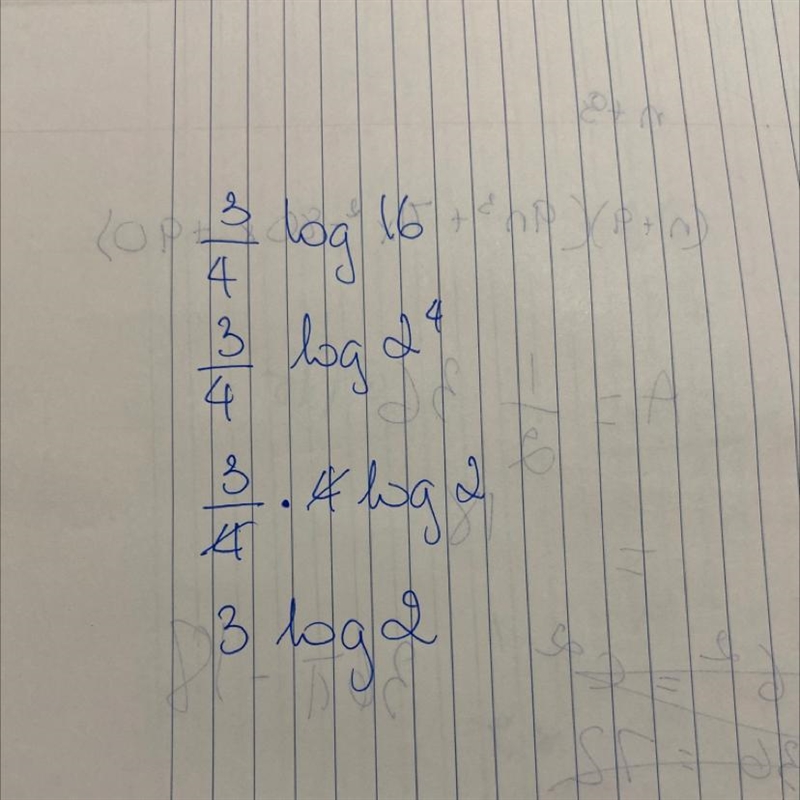 3/4 log 16
3/4 log 2⁴
3/4 · 4 log 2
3 log 2